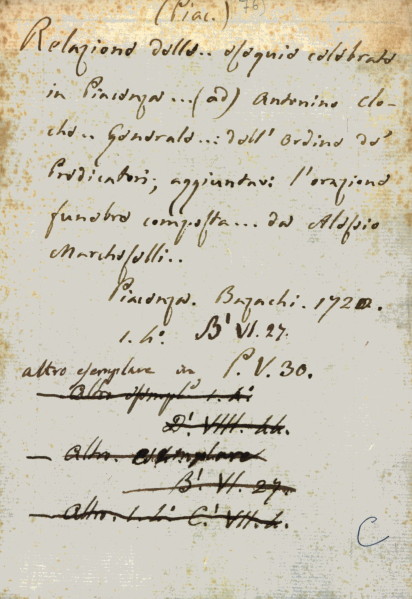 (Piac.) 76)
Relazione delle esequie celebrate
in Piacenza... (ad) Antonino Clo-
che.. Generale... dell' Ordine de'
Predicatori; aggiuntavi l'orazione
funebre composta... da Aloisio
Marchefelli..
Piacenza. Bazachi. 1720.
1. 4º. B' VI. 27.
altro esemplare in P. V. 30.
Altro esempl.e 1. 4º
D'. VIII. 44.
— Altro. esemplare
B'. VI. 27.
— Altro. 1. 4º C'. VII. 4.
C